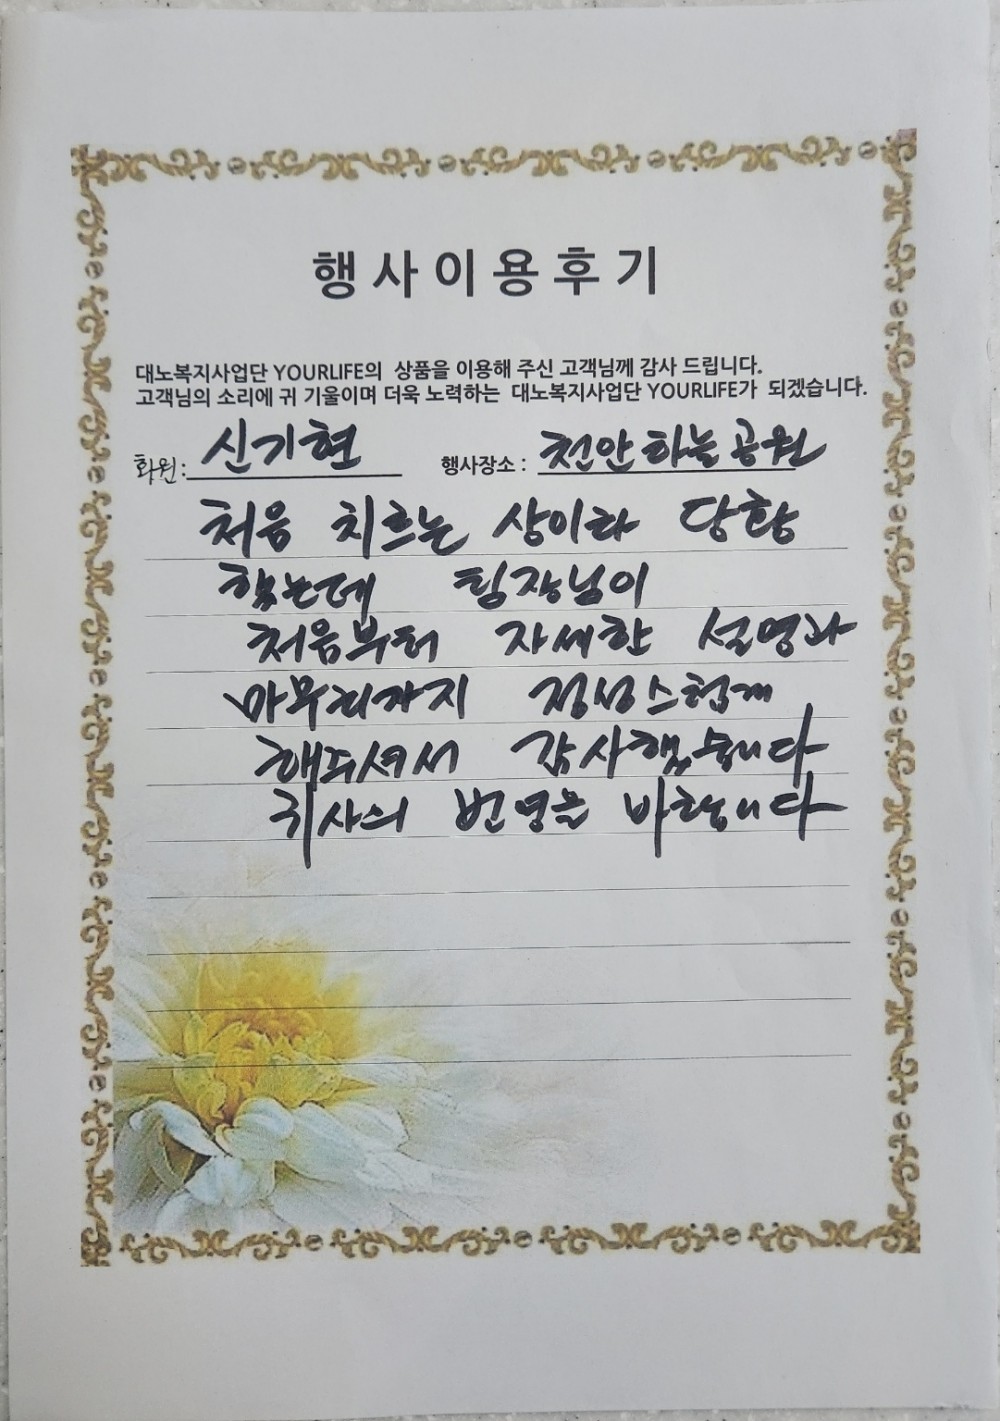 행사이용후기
대노복지사업단 YOURLIFE의 상품을 이용해 주신 고객님께 감사 드립니다.
고객님의 소리에 귀 기울이며 더욱 노력하는 대노복지사업단 YOURLIFE가 되겠습니다.
회원: 신기현 행사장소 : 천안하늘공원
처음 치르는 상이라 당황
했는데 팀장님이
처음부터 자세한 설명과
마무리까지 정성스럽게
해주셔서 감사했습니다
귀사의 번영을 바랍니다